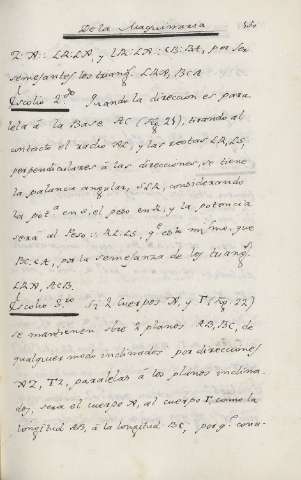 De la Maquinaria
Z: A:: LR:LA, y LR:LA:: CB:BA, por ser
semejantes los triang.s LRA, BCA
Escolio 2.do Quando la direccion es para
lela à la Base AC (Fig 21), tirando al
contacto el radio RL, y las rectas LR, LS,
perpendiculares à las direcciones, se tiene
la palanca angular, SLR, considerando
la pot.a en S, el peso en R, y la potencia
será al Peso:: RL:LS, q.e es lo mismo, que
BC:CA, por la semejanza de los triang.s
LRA, ACB.
Escolio 3.ro Si 2 Cuerpos A, y T (Fig. 22)
se mantienen sbre 2 planos AB, BC, de
qualquier modo inclinados por direcciones
AZ, TZ, paralelas à los planos inclina
dos, sera el cuerpo A, al cuerpo T, como la
longitud AB, à la longitud BC, por q.e